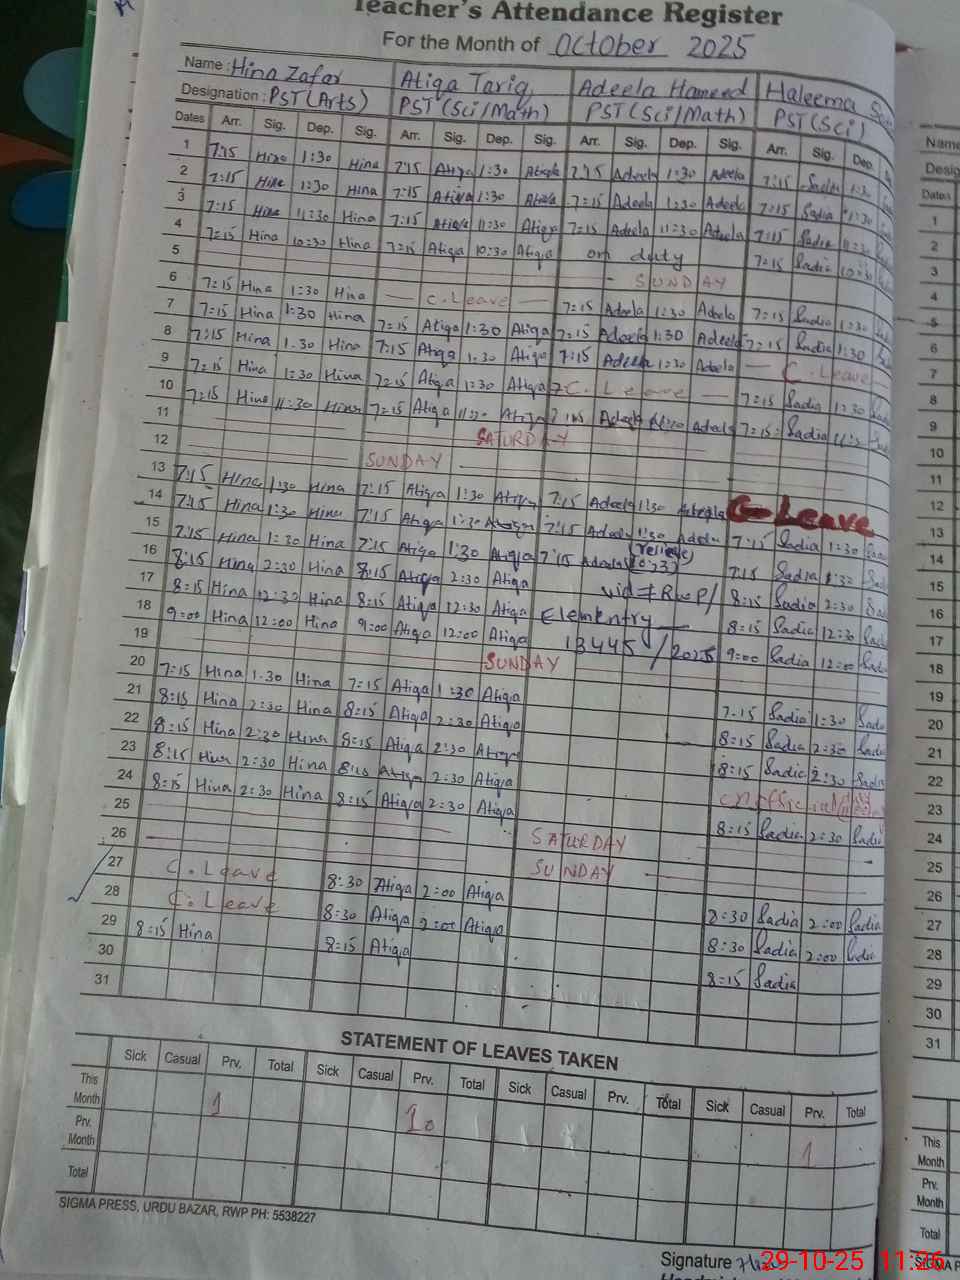 Teacher's Attendance Register
For the Month of October 2025
Name : Hina Zafar Atiqa Tariq Adeela Hameed Haleema
Designation : PST(Arts) PST(Sci/Math) PST(Sci/Math) PST(Sci)
Dates Arr. Sig. Dep. Sig. Arr. Sig. Dep. Sig. Arr. Sig. Dep. Sig. Arr. Sig. Dep.
1 7:15 Hina 1:30 Hina 7:15 Atiqa 1:30 Atiqa 7:15 Adeela 1:30 Adeela 7:15 Sadia 1:30
2 7:15 Hina 1:30 Hina 7:15 Atiqa 1:30 Atiqa 7=15 Adeela 1:30 Adeela 7:15 Sadia 11:30
3 7:15 Hina 11:30 Hina 7:15 Atiqa 11:30 Atiqa 7=15 Adeela 11:30 Adeela 7:15 Sadia 11:30
4 7=15 Hina 10:30 Hina 7=15 Atiqa 10:30 Atiqa on duty 7=15 Sadia 10:30
5 SUNDAY
6 7=15 Hina 1:30 Hina — C.Leave — 7:15 Adeela 1:30 Adeela 7:15 Sadia 1:30
7 7:15 Hina 1:30 Hina 7=15 Atiqa 1:30 Atiqa 7=15 Adeela 1:30 Adeela 7=15 Sadia 1:30
8 7:15 Hina 1.30 Hina 7:15 Atiqa 1.30 Atiqa 7:15 Adeela 1:30 Adeela — C.Leave —
9 7=15 Hina 1:30 Hina 7=15 Atiqa 1:30 Atiqa C. Leave — 7:15 Sadia 1:30
10 7=15 Hina 11:30 Hina 7=15 Atiqa Atiqa Adeela Adeela 7=15 Sadia
11 SATURDAY
12 SUNDAY
13 7:15 Hina 1:30 Hina 7:15 Atiqa 1:30 Atiqa 7:15 Adeela 1:30 Adeela C- Leave
14 7:15 Hina 1:30 Hina 7:15 Atiqa 1:30 Atiqa 7:15 Adeela 1:30 Adeela 7:15 Sadia 1:30
15 7:15 Hina 1:30 Hina 7:15 Atiqa 1:30 Atiqa 7:15 Adeela 7:15 Sadia
16 8:15 Hina 2:30 Hina 8:15 Atiqa 2:30 Atiqa vid # RWP/ 8:15 Sadia 2:30
17 8:15 Hina 12:30 Hina 8:15 Atiqa 12:30 Atiqa Elementry 8:15 Sadia 12:30
18 9:00 Hina 12:00 Hina 9:00 Atiqa 12:00 Atiqa 13445/2025 9:00 Sadia 12:00
19 SUNDAY
20 7:15 Hina 1.30 Hina 7:15 Atiqa 1:30 Atiqa 7.15 Sadia 1:30
21 8:15 Hina 2:30 Hina 8:15 Atiqa 2:30 Atiqa 8:15 Sadia 2:30
22 8:15 Hina 2:30 Hina 8:15 Atiqa 2:30 Atiqa 8:15 Sadia 2:30
23 8:15 Hina 2:30 Hina 8:15 Atiqa 2:30 Atiqa
24 8:15 Hina 2:30 Hina 8:15 Atiqa 2:30 Atiqa 8:15 Sadia 2:30 Sadia
25 SATURDAY
26 SUNDAY
27 C. Leave 8:30 Atiqa 2:00 Atiqa 8:30 Sadia 2:00 Sadia
28 C. Leave 8:30 Atiqa 2:00 Atiqa 8:30 Sadia 2:00 Sadia
29 8=15 Hina 8:15 Atiqa 8=15 Sadia
30
31
STATEMENT OF LEAVES TAKEN
Sick Casual Prv. Total Sick Casual Prv. Total Sick Casual Prv. Total Sick Casual Prv. Total
This Month 1 10 1
Prv. Month
Total
SIGMA PRESS, URDU BAZAR, RWP PH: 5538227
Signature
29-10-25 11:26
Name
Dates
1
2
3
4
5
6
7
8
9
10
11
12
13
14
15
16
17
18
19
20
21
22
23
24
25
26
27
28
29
30
31
This Month
Prv. Month
Total